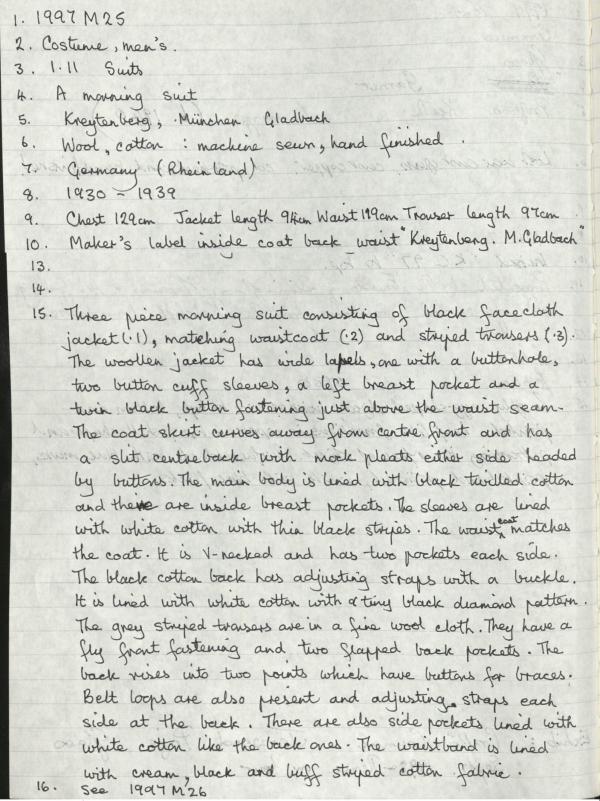 1. 1997 M25
2. Costume, men's.
3. 1.11 Suits
4. A morning suit
5. Kreytenberg, München Gladbach
6. Wool, cotton : machine sewn, hand finished.
7. Germany (Rheinland)
8. 1930 - 1939
9. Chest 129cm Jacket length 94cm Waist 119cm Trouser length 97cm
10. Maker's label inside coat back waist "Kreytenberg. M.Gladbach"
13.
14.
15. Three piece morning suit consisting of black facecloth
jacket (.1), matching waistcoat (.2) and striped trousers (.3).
The woollen jacket has wide lapels, one with a buttonhole,
two button cuff sleeves, a left breast pocket and a
twin black button fastening just above the waist seam.
The coat skirt curves away from centre front and has
a slit centre back with mock pleats either side headed
by buttons. The main body is lined with black twilled cotton
and there are inside breast pockets. The sleeves are lined
with white cotton with thin black stripes. The waistcoat matches
the coat. It is V-necked and has two pockets each side.
The black cotton back has adjusting straps with a buckle.
It is lined with white cotton with a tiny black diamond pattern.
The grey striped trousers are in a fine wool cloth. They have a
fly front fastening and two flapped back pockets. The
back rises into two points which have buttons for braces.
Belt loops are also present and adjusting straps each
side at the back. There are also side pockets lined with
white cotton like the back ones. The waistband is lined
with cream, black and buff striped cotton fabric.
16. See 1997 M26